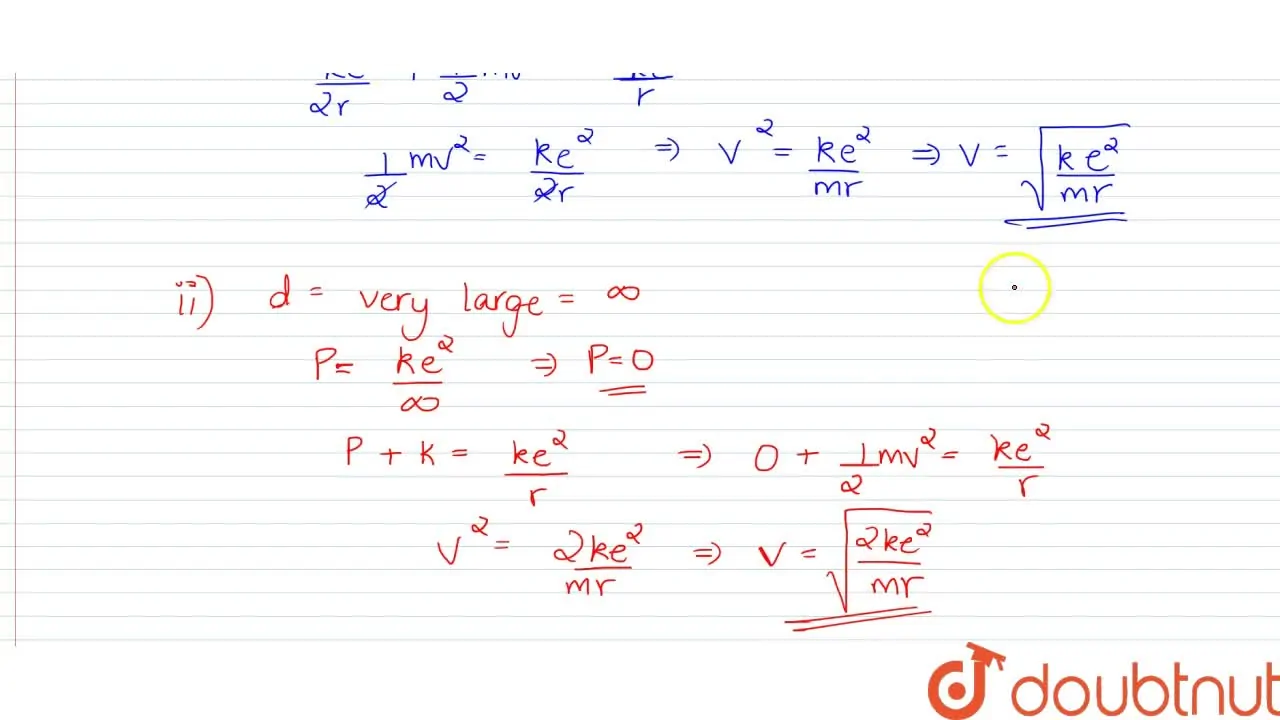 2r 2 r
1/2 mv² = ke²/2r ⇒ v² = ke²/mr ⇒ v = √(ke²/mr)
ii) d = very large = ∞
P = ke²/∞ ⇒ P = 0
P + k = ke²/r ⇒ 0 + 1/2 mv² = ke²/r
v² = 2ke²/mr ⇒ v = √(2ke²/mr)
doubtnut